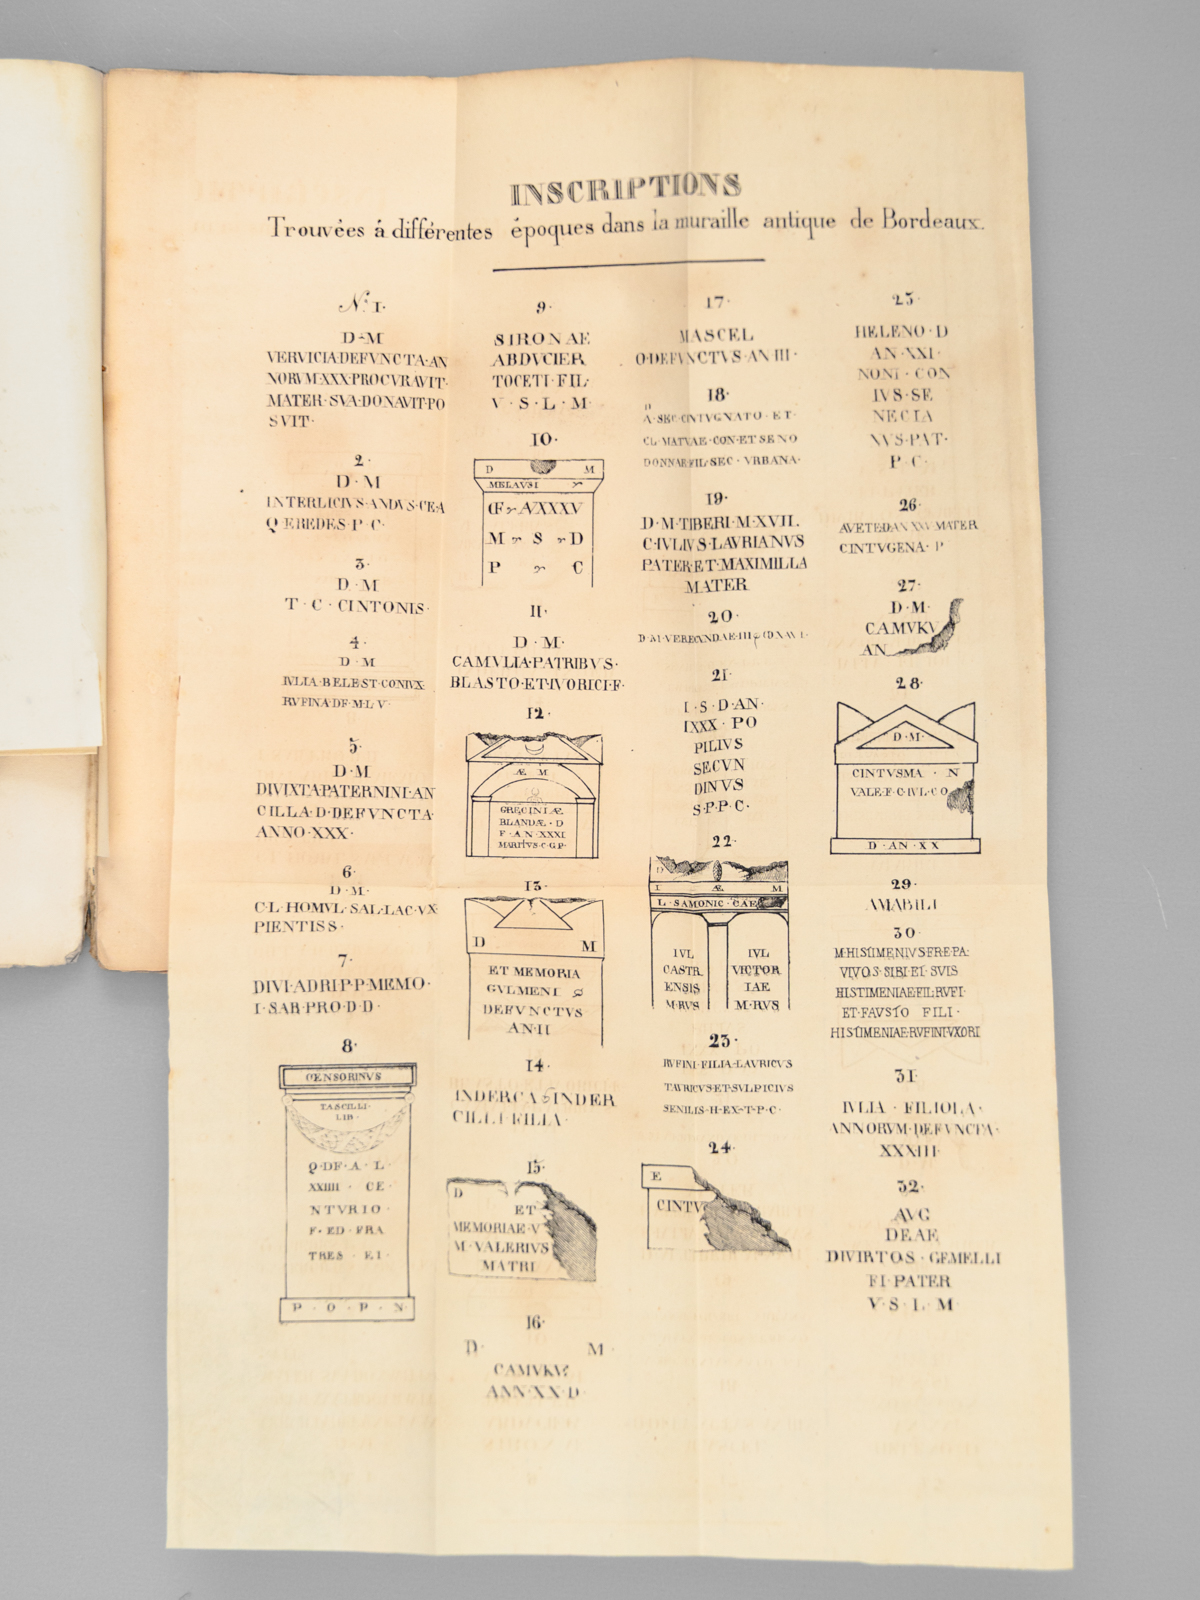 INSCRIPTIONS
Trouvées á différentes époques dans la muraille antique de Bordeaux.
N.º 1.
D·M
VERVICIA·DEFVNCTA·AN
NORVM·XXX·PROCVRAVIT·
MATER·SVA·DONAVIT·PO
SVIT·
2·
D·M
INTERLICIVS·ANDVS·CE·A
Q EREDES·P·C·
3·
D·M
T·C·CINTONIS·
4·
D·M
IVLIA·BELEST·CONIVX
RVFINA·DF·M·L·V·
5·
D·M
DIVIXTA·PATERNINI·AN
CILLA·D·DEFVNCTA·
ANNO·XXX·
6·
D·M·
C·L·HOMVL·SAL·LAC·VX
PIENTISS·
7·
DIVI·ADRI·P·P·MEMO·
I·SAR·PRO·D·D·
8·
CENSORINVS
TASCILLI·
LIB·
Q·DF·A·L·
XXIIII·CE·
NTVRIO
F·ED·FRA
TRES·EI·
P·O·P·N
9·
SIRONAE
ABDVCIER
TOCETI·FIL·
V·S·L·M·
10·
D M
MELAVSI
M S D
P C
11·
D·M·
CAMVLIA·PATRIBVS·
BLASTO·ET·IVORICI·F·
12·
Æ M
GRECINIÆ
BLANDÆ·D
F·AN·XXXI
MARITVS·C·G·P·
13·
D M
ET MEMORIA
GVLMENI
DEFVNCTVS
AN·II
14·
INDERCA INDER
CILLI·FILIA·
15·
D
ET
MEMORIAE·V
M·VALERIVS
MATRI
16·
D· M·
CAMVKV
ANN·XX·D·
17·
MASCEL
O·DEFVNCTVS·AN·III·
18·
A·SEC·CINTVGNATO·ET·
CL·MATVAE·CON·ET·SENO
DONNAE·FIL·SEC·VRBANA·
19·
D·M·TIBERI·M·XVII.
C·IVLIVS·LAVRIANVS
PATER·ET·MAXIMILLA
MATER
20·
D·M·VERECVNDAE·III
21·
I·S·D·AN·
IXXX·PO
PILIVS
SECVN
DINVS
S·P·P·C·
22·
D
I Æ M
L·SAMONIC·CAE
IVL IVL
CASTR VICTOR
ENSIS IAE
M·RVS M·RVS
23·
RVFINI·FILIA·LAVRICVS
TAVRICVS·ET·SVLPICIVS
SENILIS·H·EX·T·P·C·
24·
E
CINTV
25·
HELENO·D
AN·XXI·
NONI·CON
IVS·SE
NECIA
NVS·PAT·
P·C·
26·
MATER
CINTVGENA·P
27·
D·M·
CAMVKV
AN
28·
D·M·
CINTVSMA·N
VALE·F·C·IVL·CO
D·AN·XX
29·
AMABILI
30·
M·HISTIMENIVS·FRE·PA·
VIVOS·SIBI·ET·SVIS
HISTIMENIAE·FIL·RVFI·
ET·FAVSTO FILI·
HISTIMENIAE·RVFINI·VXORI
31·
IVLIA·FILIOLA·
ANNORVM·DEFVNCTA·
XXXIII·
32·
AVG
DEAE
DIVIRTOS·GEMELLI
FI·PATER
V·S·L·M